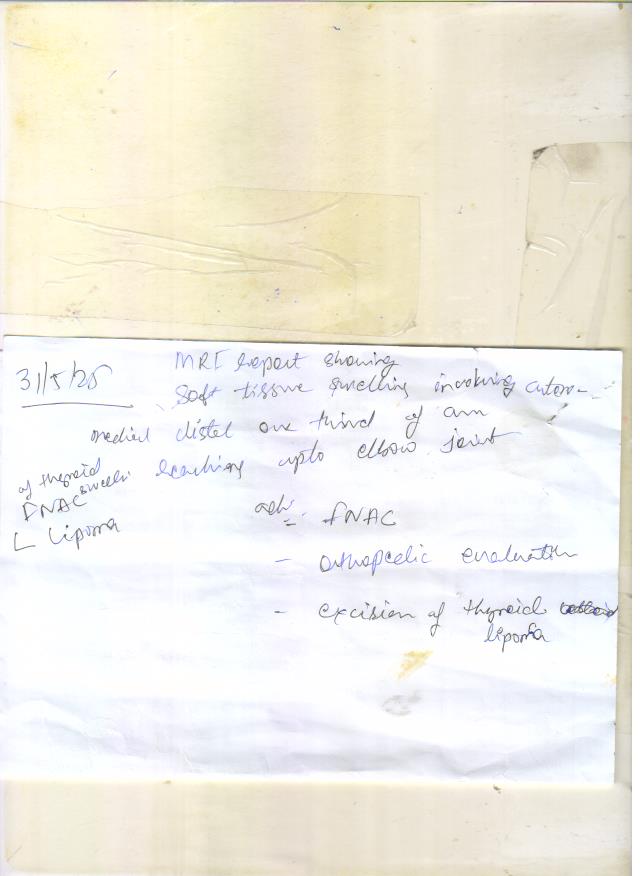 31/5/25
MRI report showing
Soft tissue swelling involving antero-
medial distal one third of arm
reaching upto elbow joint
of thyroid
FNAC swelli
L lipoma
adv. FNAC
- Orthopedic evaluation
- excision of thyroid
lipoma